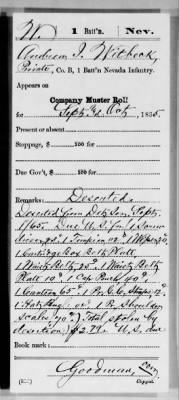 W. | 1 Batt'n. | Nev.
Andrew J. Witbeck,
Private, Co. B, 1 Batt'n Nevada Infantry.
Appears on
Company Muster Roll
for Sept & Oct, 1865.
Present or absent
Stoppage, $ 100 for
Due Gov't, $ 100 for
Remarks: Deserted.
Deserted from Det. Ser. Sept.
1/65. Due U.S. for 1 Screw
Driver 1 Tompion 1 Wiper
1 Cartridge Box Belt Plate
1 Waist Belt 1 Waist Belt
Plate 1 Cap Pouch
1 Canteen 1 Straps
1 1 R. Shoulder
scales Total stolen by
desertion $ 2.79. U.S. due
Book mark:
Goodman,
Copyist.